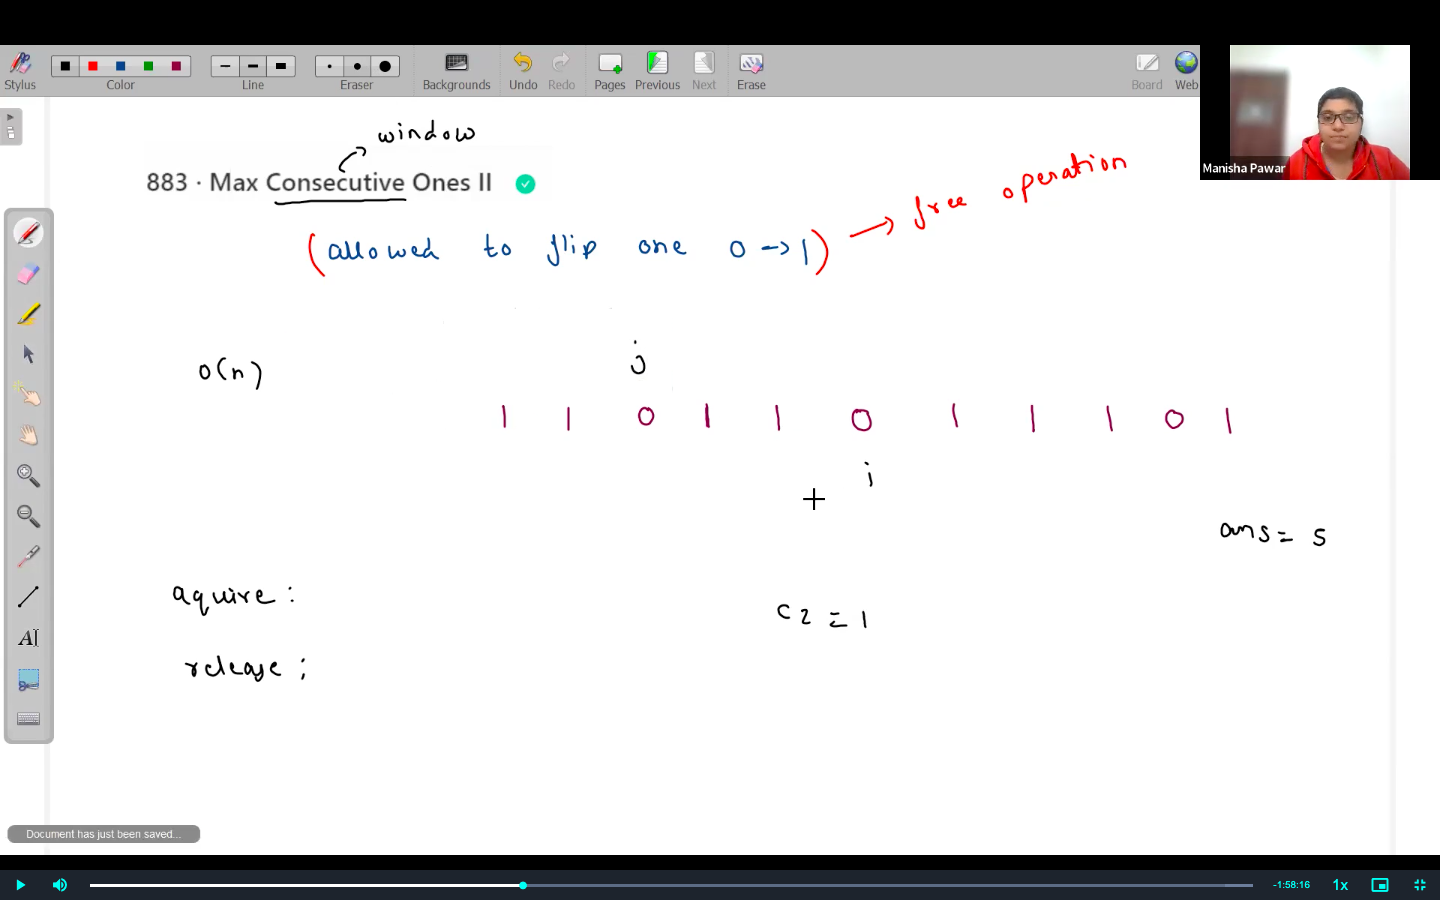 Stylus Color Line Eraser Backgrounds Undo Redo Pages Previous Next Erase Board Web
Manisha Pawar
window
883 · Max Consecutive Ones II
(allowed to flip one 0 -> 1) → free operation
j
O(n)
1 1 0 1 1 0 1 1 1 0 1
i
ans = 5
aquire :
cz = 1
release :
AI
Document has just been saved...
-1:58:16 1x